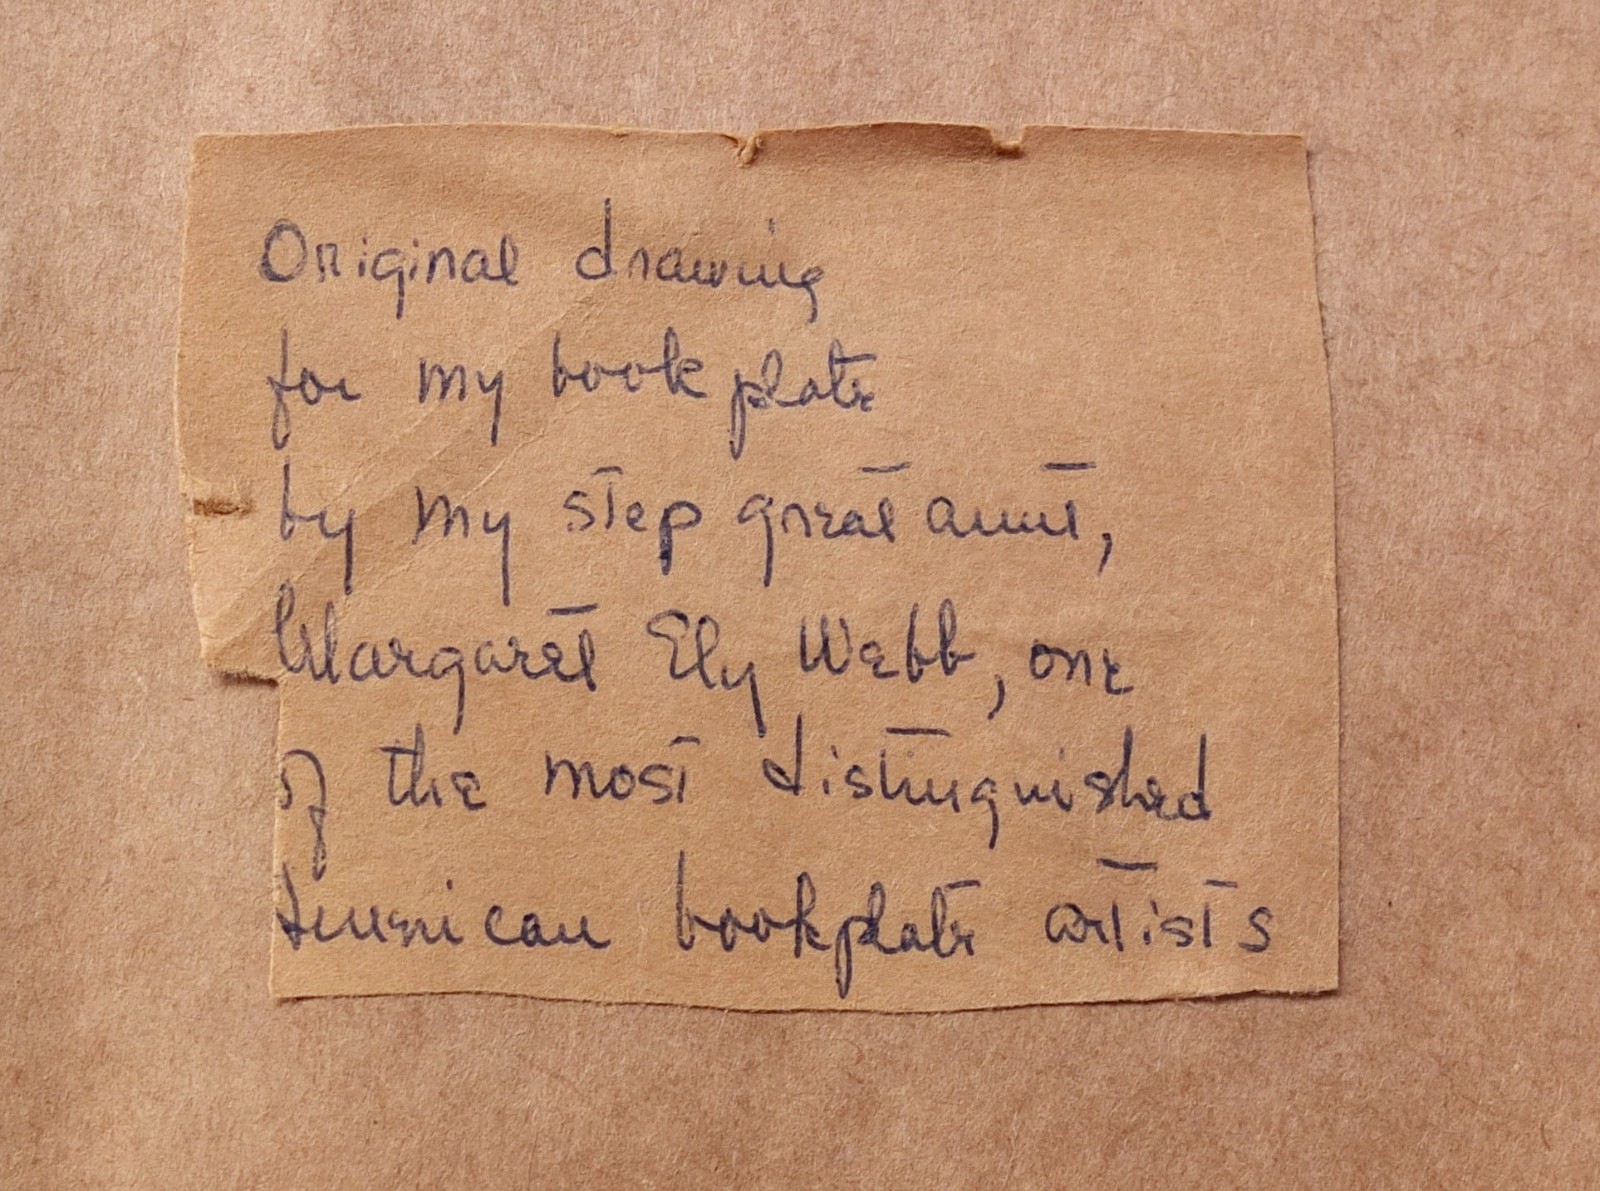 Original drawing
for my book plate
by my step great aunt,
Margaret Ely Webb, one
of the most distinguished
American bookplate artists